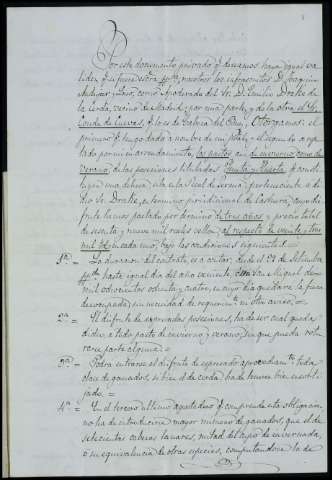 Por este documento privado q.e queremos haya igual va-
lidez q.e si fuera escra. pca., nosotros los infrascritos D. Joaquin
como Apoderado del Sr. D. Emilio Drake de
la Cerda, vecino de Madrid, por una parte, y de la otra el Sr.
Conde de Cuevas q.e lo es de Otorgamos: el
primero q.e tengo dado a nombre de mi pral. y el segundo a
tado por mi en arrendamiento, los pastos en invierno, como de
verano, de las posesiones tituladas q.e consti-
tuyen una dehesa, sita en la Real de Serena, perteneciente a di-
cho Sr. Drake, en termino jurisdicional de cuyo dis-
frute hemos pactado por termino de tres años y precio total
de sesenta y nueve mil reales vellon, al respecto de veinte y tres
mil rs. en cada uno, bajo las condiciones siguientes:
1ª = La duracion del contrato es a contar, desde el 29 de Setiembre
hasta igual dia del año veniente, San Miguel de mil
ochocientos ochenta y cuatro, en cuyo dia quedara la finca
desocupada, sin necesidad de requerim.to ni otro aviso. =
2ª = El disfrute de espresadas posesiones, ha de ser cual queda
dicho, a todo pasto de invierno y verano, sin que pueda
rarse parte alguna =
3ª = Podra entrarse al disfrute de espresado aprovecham.to toda
clase de ganados, si bien el de cerda, ha de tenerse bien
jado. =
4ª = En el tercero y ultimo agostadero q.e comprende esta obligacion,
no ha de introducirse mayor numero de ganados, que el de
setecientas cabezas lanares, mitad del cupo de invernada,
o su equivalencia de otras especies, computandose la de